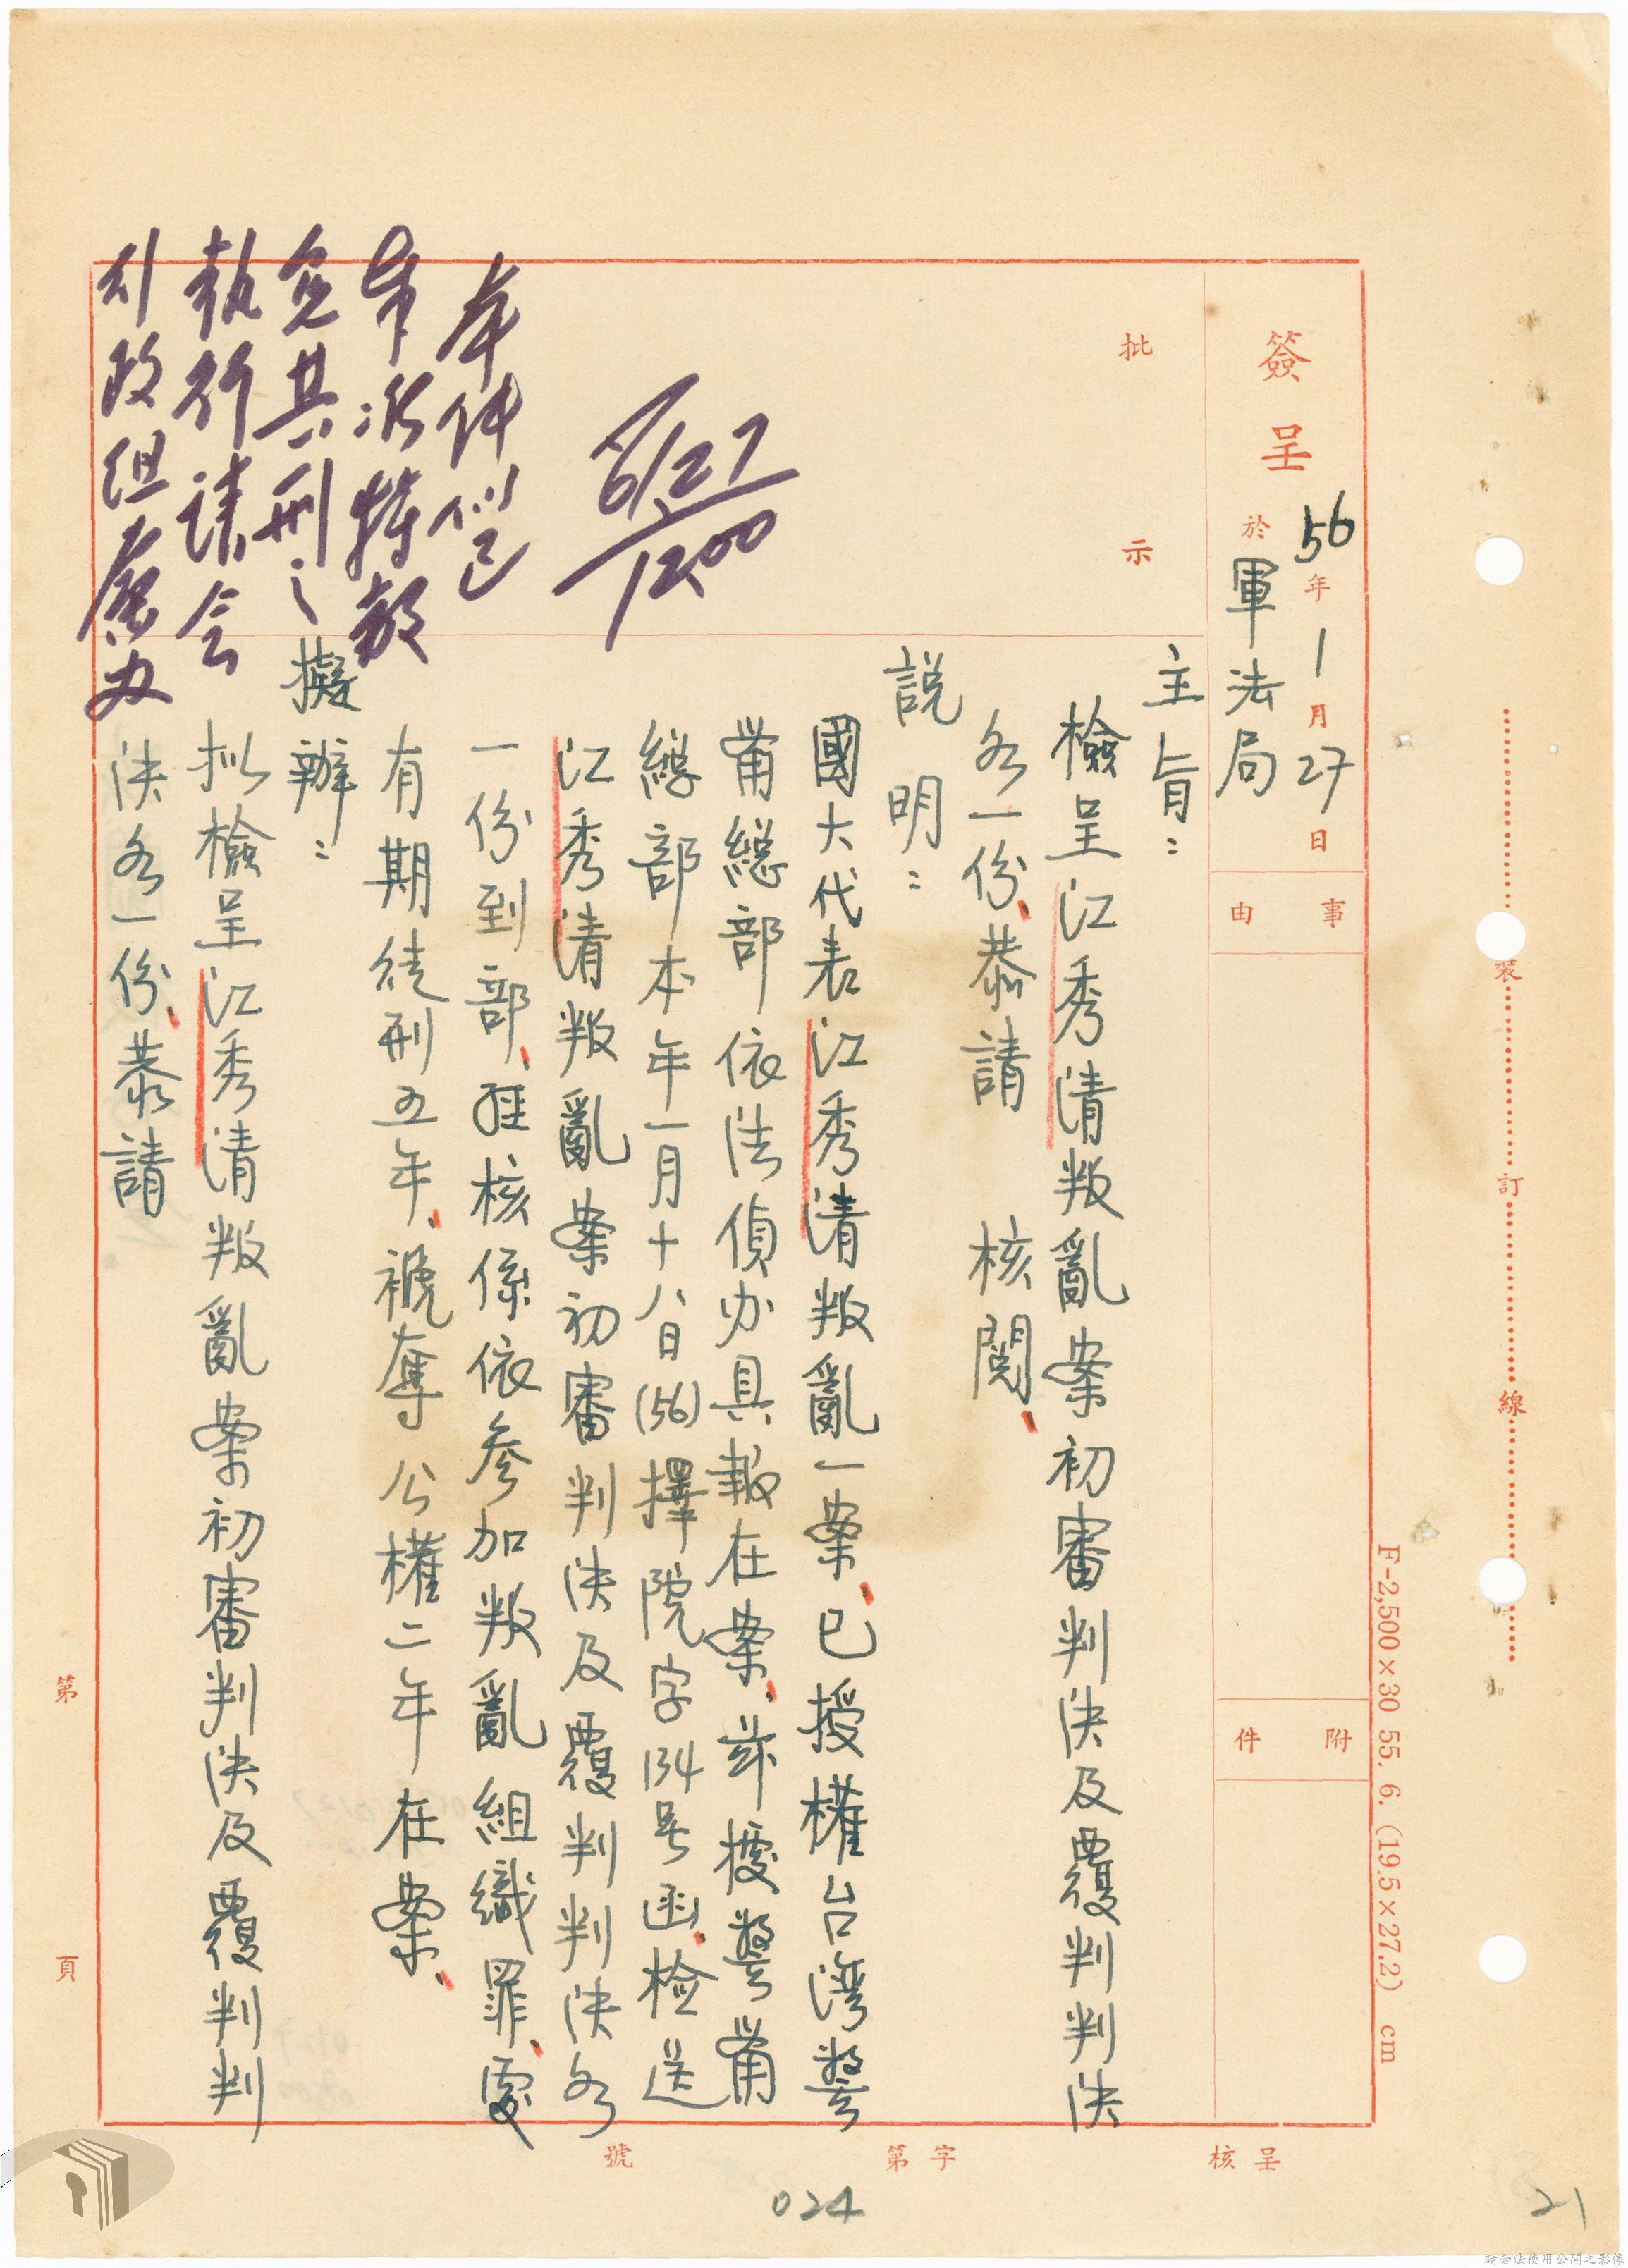 簽呈
56年1月27日
於軍法局
事由
附件
批示
主旨：
檢呈江秀清叛亂案初審判決及覆判判決
各一份、恭請 核閱、
説明：
國大代表江秀清叛亂一案、已授權台湾警
備總部依法偵办具報在案、茲據警備
總部本年一月十八日(56)擇院字134号函、检送
江秀清叛亂案初審判決及覆判判決各
一份到部、經核係依參加叛亂組織罪、處
有期徒刑五年、褫奪公權二年在案、
擬辦：
拟檢呈江秀清叛亂案初審判決及覆判判
決各一份、恭請
6/27
1200
本件似已
奉准特赦
免其刑之
執行請会
政組
办
裝訂線
F-2,500×30 55. 6. (19.5×27.2) cm
第 頁
呈核
字第
號
024
21
請合法使用公開之影像